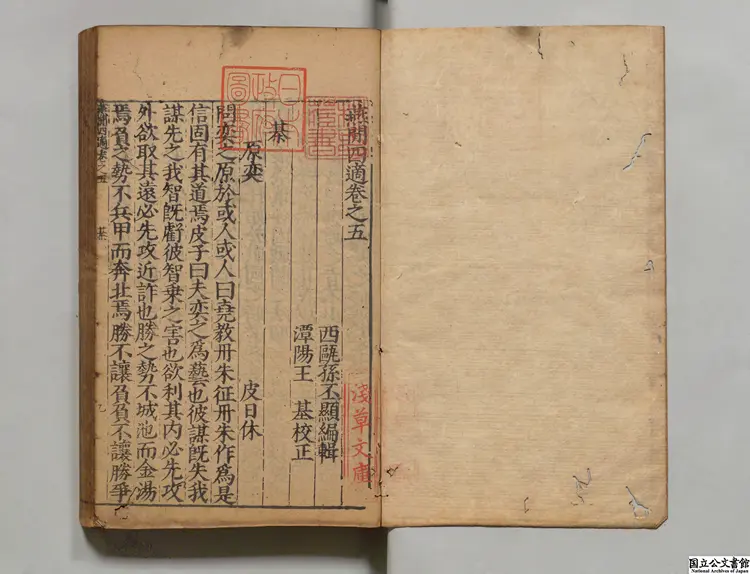 燕閒四適卷之五
西甌孫丕顯編輯
潭陽王　基校正
棊
原奕　皮日休
問奕之原於或人或人曰堯教丹朱征丹朱作為是
信固有其道焉皮子曰夫奕之為藝也彼謀既失我
謀先之我智既虧彼智乗之害也欲利其内必先攻
外欲取其遠必先攻近詐也勝之勢不城池而金湯
焉負之勢不兵甲而奔北焉勝不讓負負不讓勝爭
燕閒四適卷之五　棊
日本政府圖書
淺草文庫
国立公文書館
National Archives of Japan